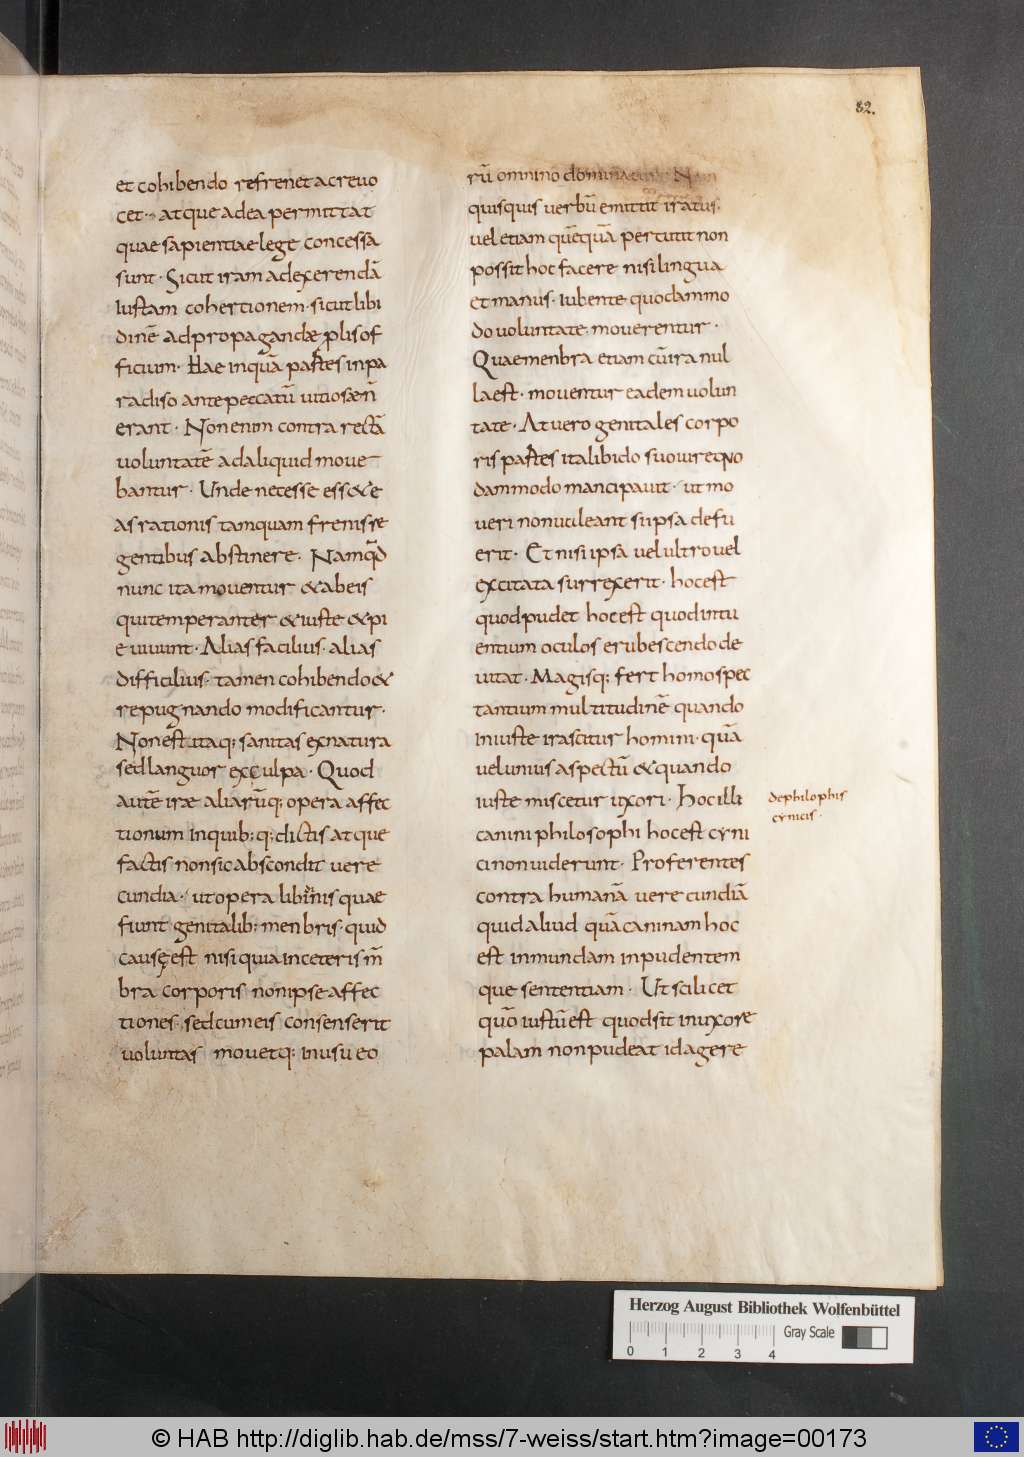 82.
et cohibendo refrenet acreuo
cet · atque adea permittat
quae sapientiae lege concessa
sunt · Sicut iram adexerendā
iustam cohertionem · sicut libi
dinē adpropagandae plis of
ficium · Hae inquā partes inpa
radiso ante peccatū uitiosae n̄
erant · Non enim contra rectā
uoluntatē adaliquid moue
bantur · Unde necesse ess& e
as rationis tamquam frenis re
gentibus abstinere · Namqd̄
nunc ita mouentur & abeis
qui temperanter & iuste & pi
e uiuunt · Alias facilius · alias
difficilius · tamen cohibendo &
repugnando modificantur ·
Non est itaq; sanitas ex natura
sed languor ex culpa · Quod
autē irae aliarūq; opera affec
tionum inquib; q; dictis atque
factis non sic abscondit uere
cundia · ut opera libinis quae
fiunt genitalib; menbris · quid
causę est nisi quia inceteris m̄
bra corporis non ipse affec
tiones · sed cum eis consenserit
uoluntas mouetq; inusu eo
rū omnino dominatur Nam
quisquis uerbū emittit iratus ·
uel etiam quēquā percutit non
possit hoc facere nisi lingua
et manus · iubente quodammo
do uoluntate mouerentur ·
Quae menbra etiam cū ira nul
la est · mouentur eadem uolun
tate · At uero genitales corpo
ris partes ita libido suo iure quo
dammodo mancipauit · ut mo
ueri non ualeant si ipsa defu
erit · Et nisi ipsa uel ultro uel
excitata surrexerit · hoc est
quod pudet hoc est quod intu
entium oculos erubescendo de
uitat · Magisq; fert homo spec
tantium multitudinē quando
iniuste irascitur homini · quā
uel unius aspectū & quando
iuste miscetur uxori · Hoc illi
canini philosophi hoc est cyni
ci non uiderunt · Proferentes
contra humanā uerecundiā
quid aliud quā caninam hoc
est inmundam inpudentem
que sententiam · Ut scilicet
quō iustū est quod sit in uxore
palam non pudeat id agere
de philophis
cynicis ·
Herzog August Bibliothek Wolfenbüttel
Gray Scale
0 1 2 3 4
© HAB http://diglib.hab.de/mss/7-weiss/start.htm?image=00173